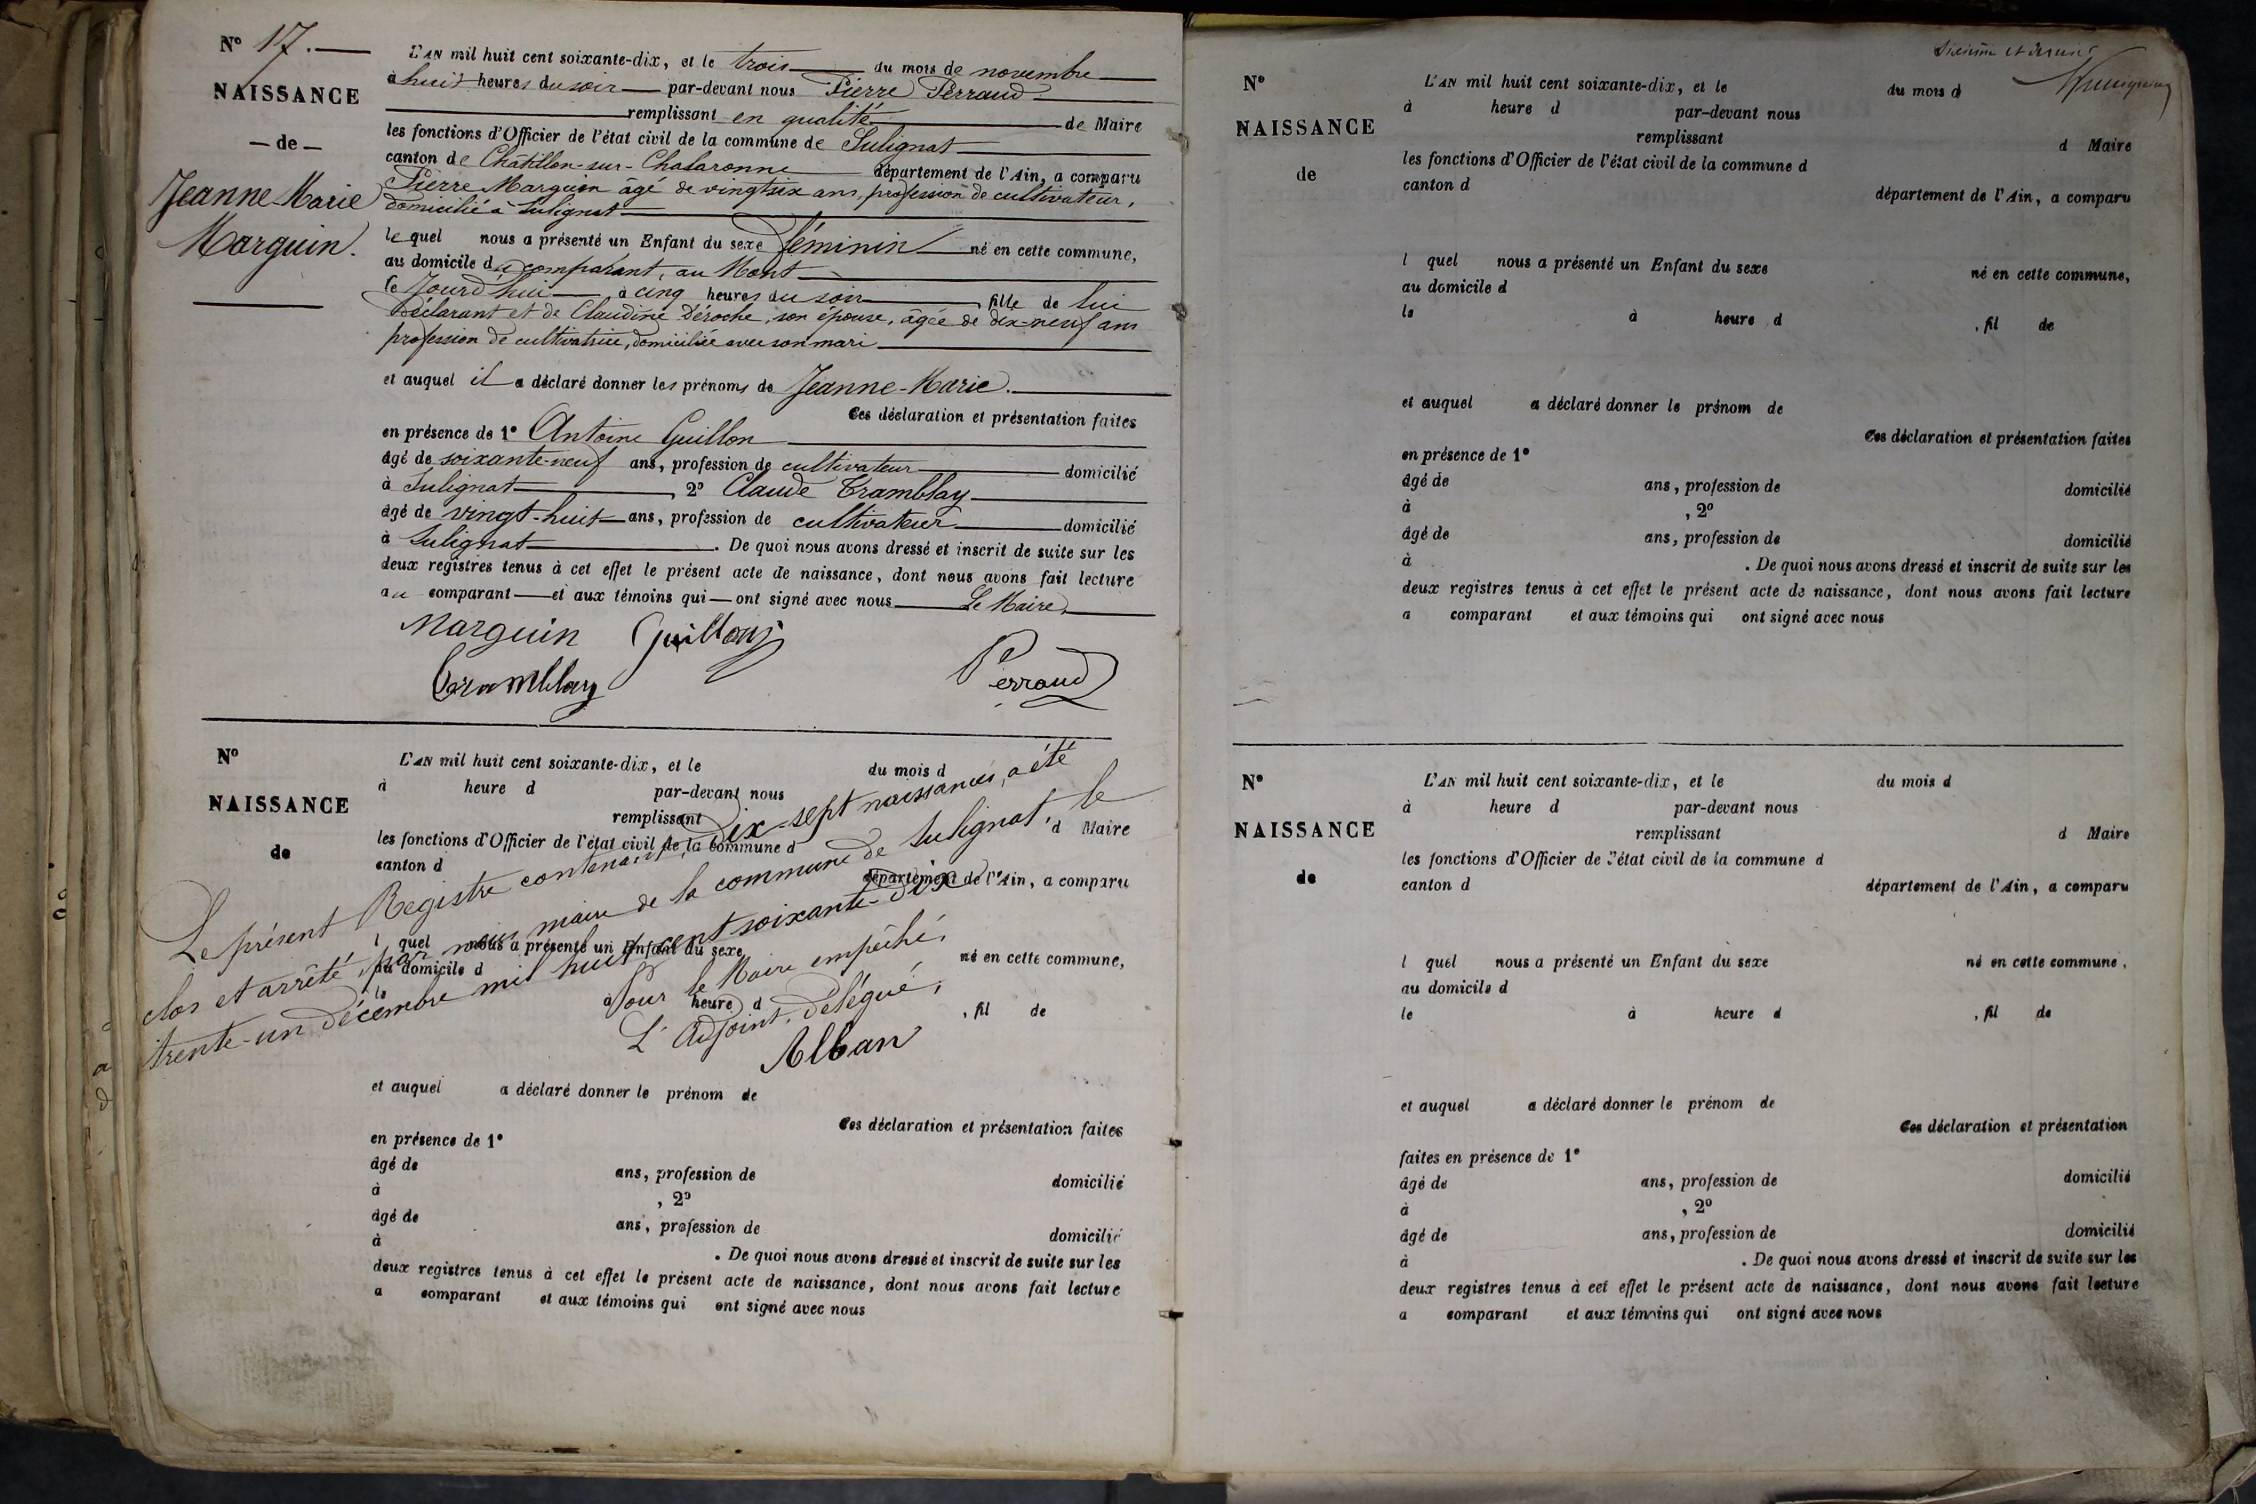 Nº 17.
NAISSANCE
— de —
Jeanne Marie
Marguin.
L'AN mil huit cent soixante-dix, et le trois du mois de novembre
à huit heures du soir par-devant nous Pierre Perraud
remplissant en qualité de Maire
les fonctions d'Officier de l'état civil de la commune de Sulignat
canton de Châtillon-sur-Chalaronne département de l'Ain, a comparu
Pierre Marguin âgé de vingt six ans, profession de cultivateur,
domicilié à Sulignat
lequel nous a présenté un Enfant du sexe féminin né en cette commune,
au domicile du comparant, au Mont
le jourd'hui à cinq heures du soir, fille de lui
Déclarant et de Claudine Déroche, son épouse, âgée de dix-neuf ans
profession de cultivatrice, domiciliée avec son mari
et auquel il a déclaré donner les prénoms de Jeanne-Marie.
Ces déclaration et présentation faites
en présence de 1º Antoine Guillon
âgé de soixante-neuf ans, profession de cultivateur domicilié
à Sulignat, 2º Claude Tramblay
âgé de vingt-huit ans, profession de cultivateur domicilié
à Sulignat. De quoi nous avons dressé et inscrit de suite sur les
deux registres tenus à cet effet le présent acte de naissance, dont nous avons fait lecture
au comparant et aux témoins qui ont signé avec nous Le Maire
Marguin Guillon
Tramblay Perraud
Nº
NAISSANCE
de
L'AN mil huit cent soixante-dix, et le du mois d
à heure d par-devant nous
remplissant d Maire
les fonctions d'Officier de l'état civil de la commune d
canton d département de l'Ain, a comparu
l quel nous a présenté un Enfant du sexe né en cette commune,
au domicile d
le à heure d , fil de
Le présent Registre contenant Dix-sept naissances, a été
clos et arrêté, par nous maire de la commune de Sulignat, le
trente-un décembre mil huit cent soixante-dix
Pour le Maire empêché,
L'Adjoint, délégué,
Alban
et auquel a déclaré donner le prénom de
Ces déclaration et présentation faites
en présence de 1º
âgé de ans, profession de domicilié
à , 2º
âgé de ans, profession de domicilié
à . De quoi nous avons dressé et inscrit de suite sur les
deux registres tenus à cet effet le présent acte de naissance, dont nous avons fait lecture
a comparant et aux témoins qui ont signé avec nous
Nº
NAISSANCE
de
L'AN mil huit cent soixante-dix, et le du mois d
à heure d par-devant nous
remplissant d Maire
les fonctions d'Officier de l'état civil de la commune d
canton d département de l'Ain, a comparu
l quel nous a présenté un Enfant du sexe né en cette commune,
au domicile d
le à heure d , fil de
et auquel a déclaré donner le prénom de
Ces déclaration et présentation faites
en présence de 1º
âgé de ans, profession de domicilié
à , 2º
âgé de ans, profession de domicilié
à . De quoi nous avons dressé et inscrit de suite sur les
deux registres tenus à cet effet le présent acte de naissance, dont nous avons fait lecture
a comparant et aux témoins qui ont signé avec nous
Nº
NAISSANCE
de
L'AN mil huit cent soixante-dix, et le du mois d
à heure d par-devant nous
remplissant d Maire
les fonctions d'Officier de l'état civil de la commune d
canton d département de l'Ain, a comparu
l quel nous a présenté un Enfant du sexe né en cette commune,
au domicile d
le à heure d , fil de
et auquel a déclaré donner le prénom de
Ces déclaration et présentation
faites en présence de 1º
âgé de ans, profession de domicilié
à , 2º
âgé de ans, profession de domicilié
à . De quoi nous avons dressé et inscrit de suite sur les
deux registres tenus à cet effet le présent acte de naissance, dont nous avons fait lecture
a comparant et aux témoins qui ont signé avec nous